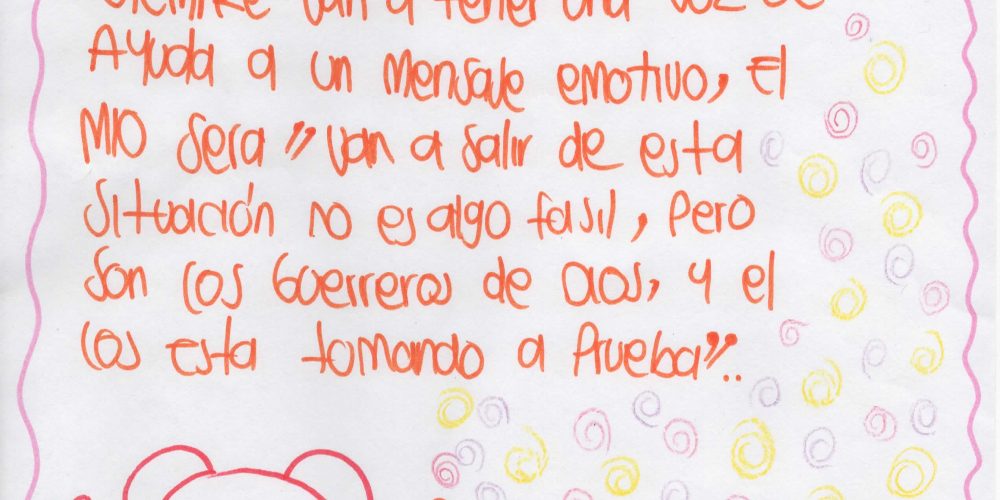 siempre van a tener una voz de
Ayuda a un mensaje emotivo, El
MIO sera "van a salir de esta
situación no es algo fasil, pero
son los Guerreros de Dios, y el
los esta tomando a Prueba"..